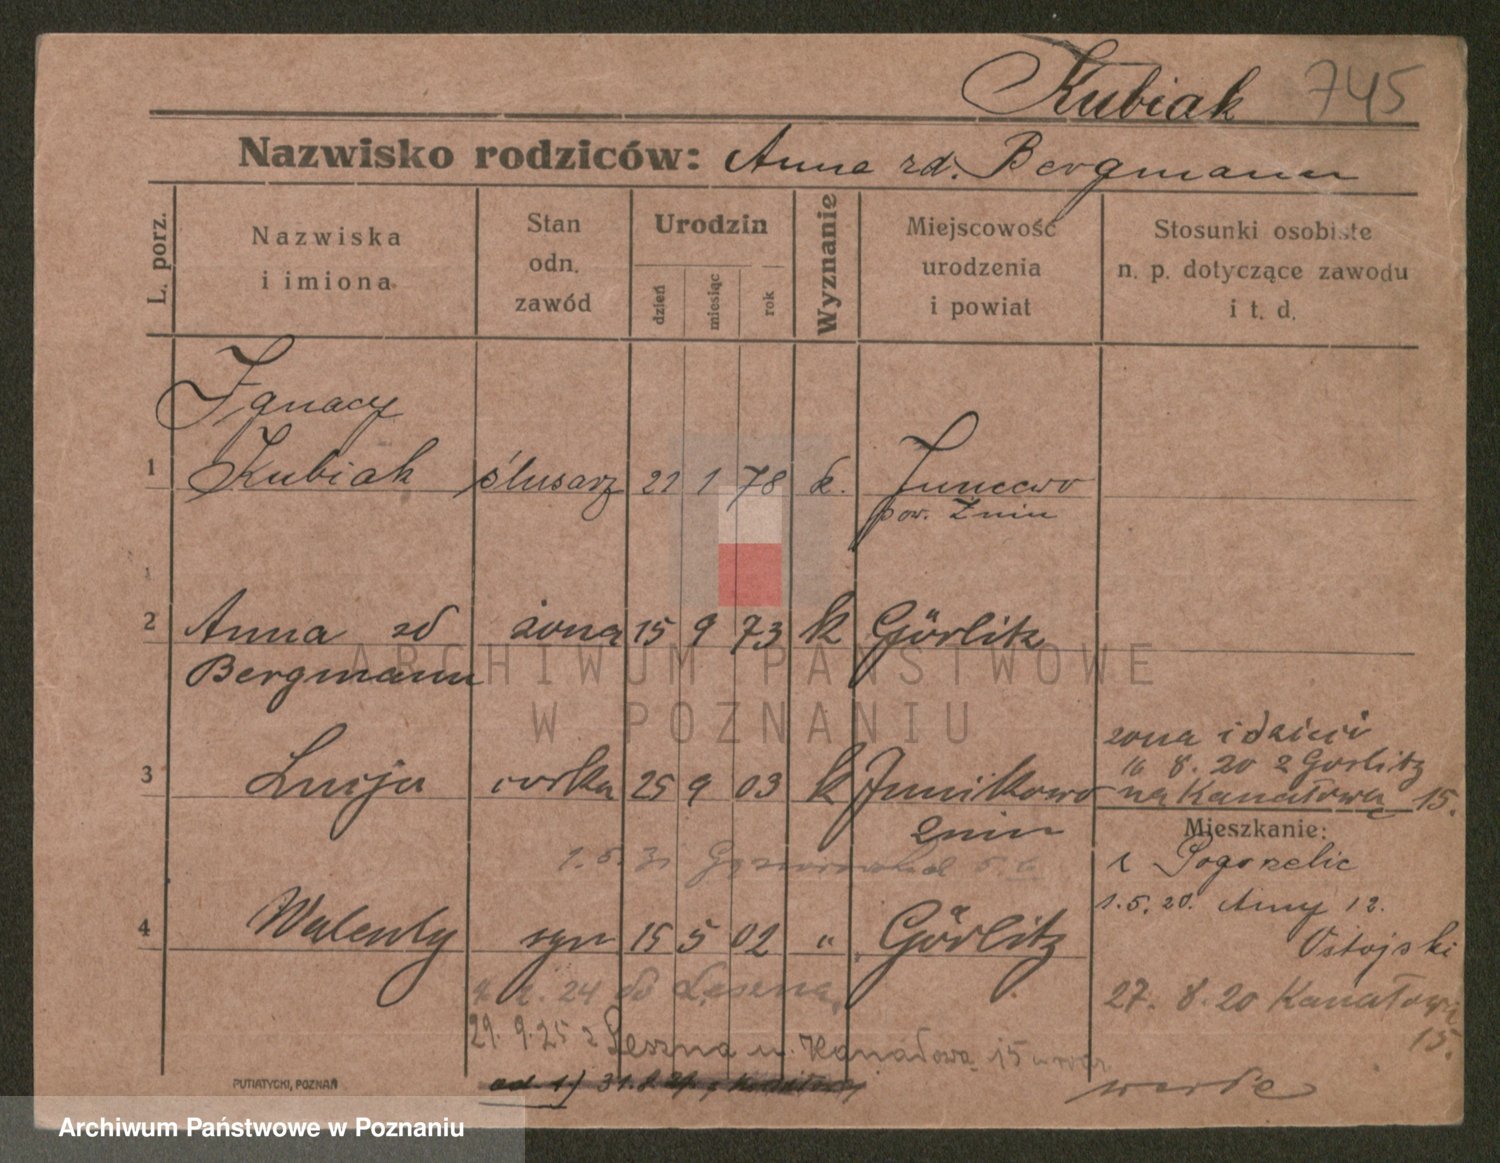 Kubiak 745
Nazwisko rodziców: Anna zd. Bergmann
L. porz.
Nazwiska
i imiona
Stan
odn.
zawód
Urodzin
dzień
miesiąc
rok
Wyznanie
Miejscowość
urodzenia
i powiat
Stosunki osobiste
n. p. dotyczące zawodu
i t. d.
Ignacy
1 Kubiak ślusarz 21 1 78 k. Juncewo
pow. Żnin
2 Anna zd żona 15 9 73 k Görlitz
Bergmann
ARCHIWUM PAŃSTWOWE
W POZNANIU
żona i dzieci
16 8. 20 z Görlitz
na Kanałową 15.
3 Lucja córka 25 9 03 k Junikowo
Żnin
Mieszkanie:
z Pogorzelic
1. 5. 31 5. 6
1. 5. 20. Anny 12.
Ostojski
4 Walenty syn 15 5 02 " Görlitz
24 do Leszna
27. 8. 20 Kanałową
15.
29. 9. 25 z Leszna u. Kanałową 15
PUTIATYCKI, POZNAŃ
Archiwum Państwowe w Poznaniu